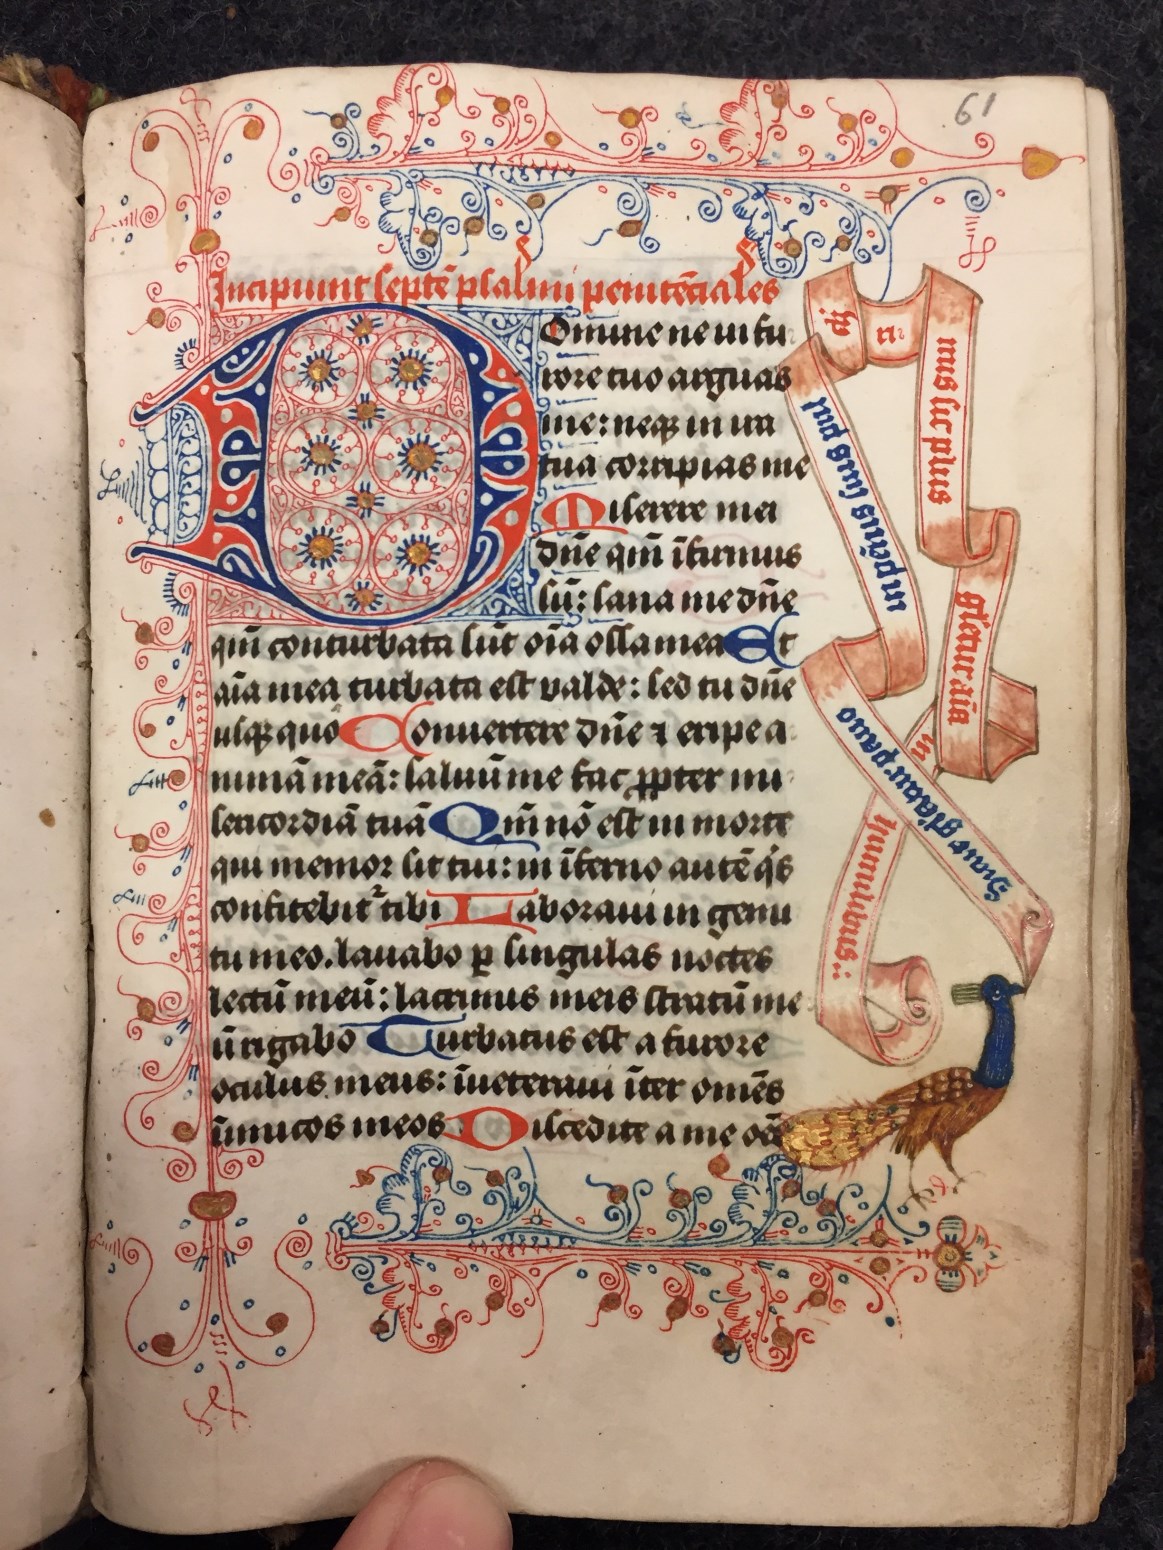 61
Incipiunt septē psalmi penitēciales
Domine ne in fu
rore tuo arguas
me: neqꝫ in ira
tua corripias me
Miserere mei
dn̄e qm̄ īfirmus
sū: sana me dn̄e
qm̄ conturbata sūt oīa ossa mea Et
aīa mea turbata est valde: sed tu dn̄e
usqꝫ quo Convertere dn̄e ⁊ eripe a
nimā meā: saluū me fac ꝓpter mi
sericordiā tuā Qm̄ nō est in morte
qui memor sit tui: in īferno autē q̄s
confitebit᷑ tibi Laboraui in gemi
tu meo. lauabo ꝑ singulas noctes
lectū meū: lacrimis meis stratū me
ū rigabo Turbatus est a furore
oculus meus: īueteraui īter omēs
inimicos meos Discedite a me oēs
Sicut gl̄iatur pauo
in pēnis suis put
mus sic plus
gl̄etur aīa
in
hominis:.